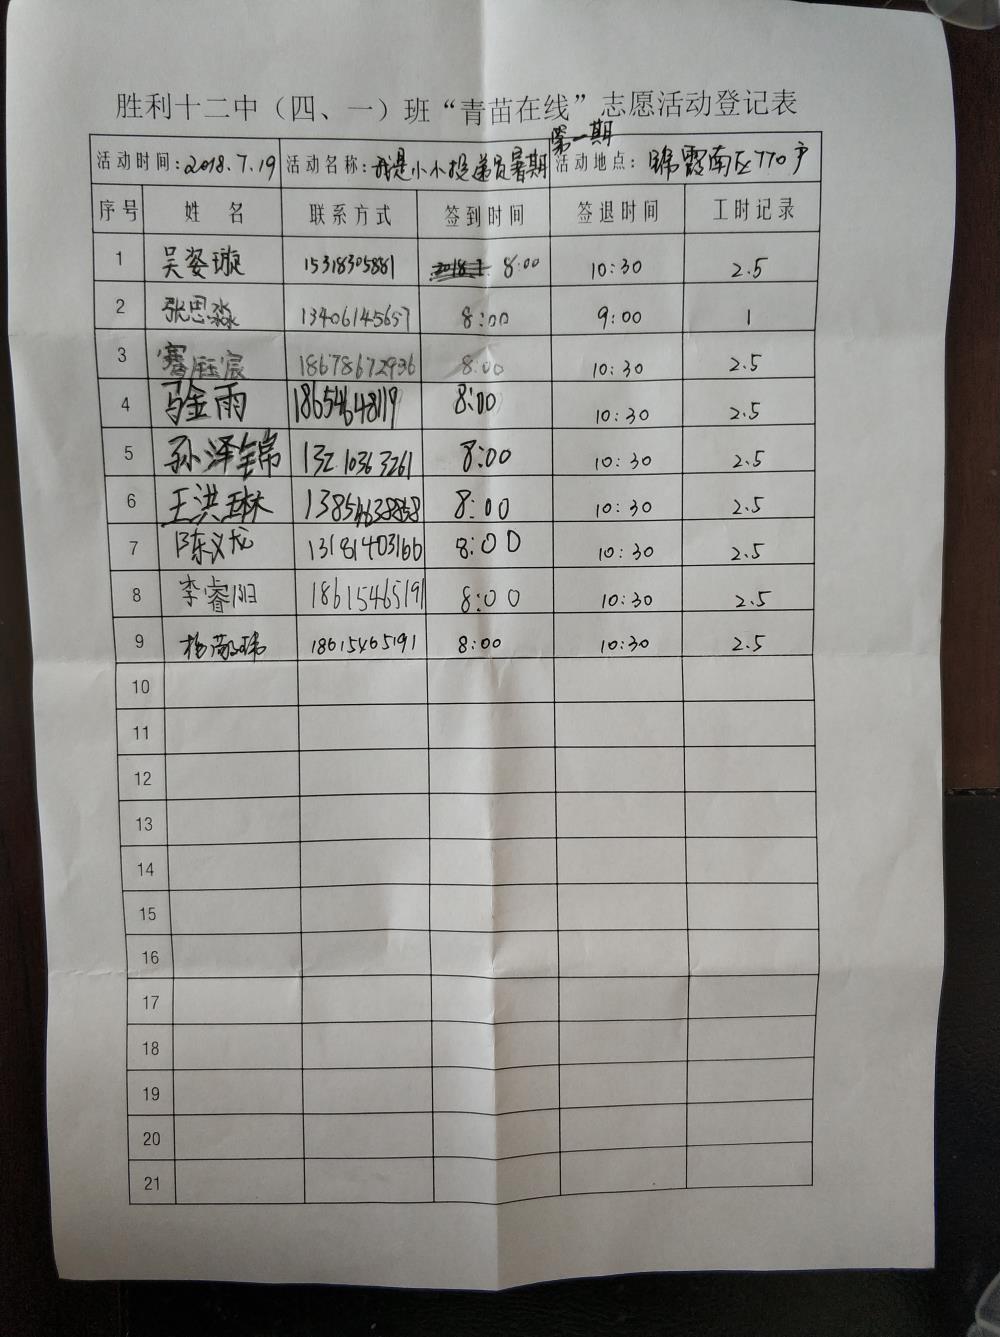 胜利十二中（四、一）班“青苗在线”志愿活动登记表
活动时间：2018.7.19 活动名称：我是小小投递员暑期第一期 活动地点：锦霞南区770户
序号 姓名 联系方式 签到时间 签退时间 工时记录
1 吴姿璇 15318305881 8:00 10:30 2.5
2 张思淼 13406145657 8:00 9:00 1
3 18678672936 8:00 10:30 2.5
4 马金雨 18654648119 8:00 10:30 2.5
5 孙泽锦 13210363261 8:00 10:30 2.5
6 王洪琳 8:00 10:30 2.5
7 陈义龙 13181403166 8:00 10:30 2.5
8 李睿阳 18615465191 8:00 10:30 2.5
9 18615465191 8:00 10:30 2.5
10
11
12
13
14
15
16
17
18
19
20
21